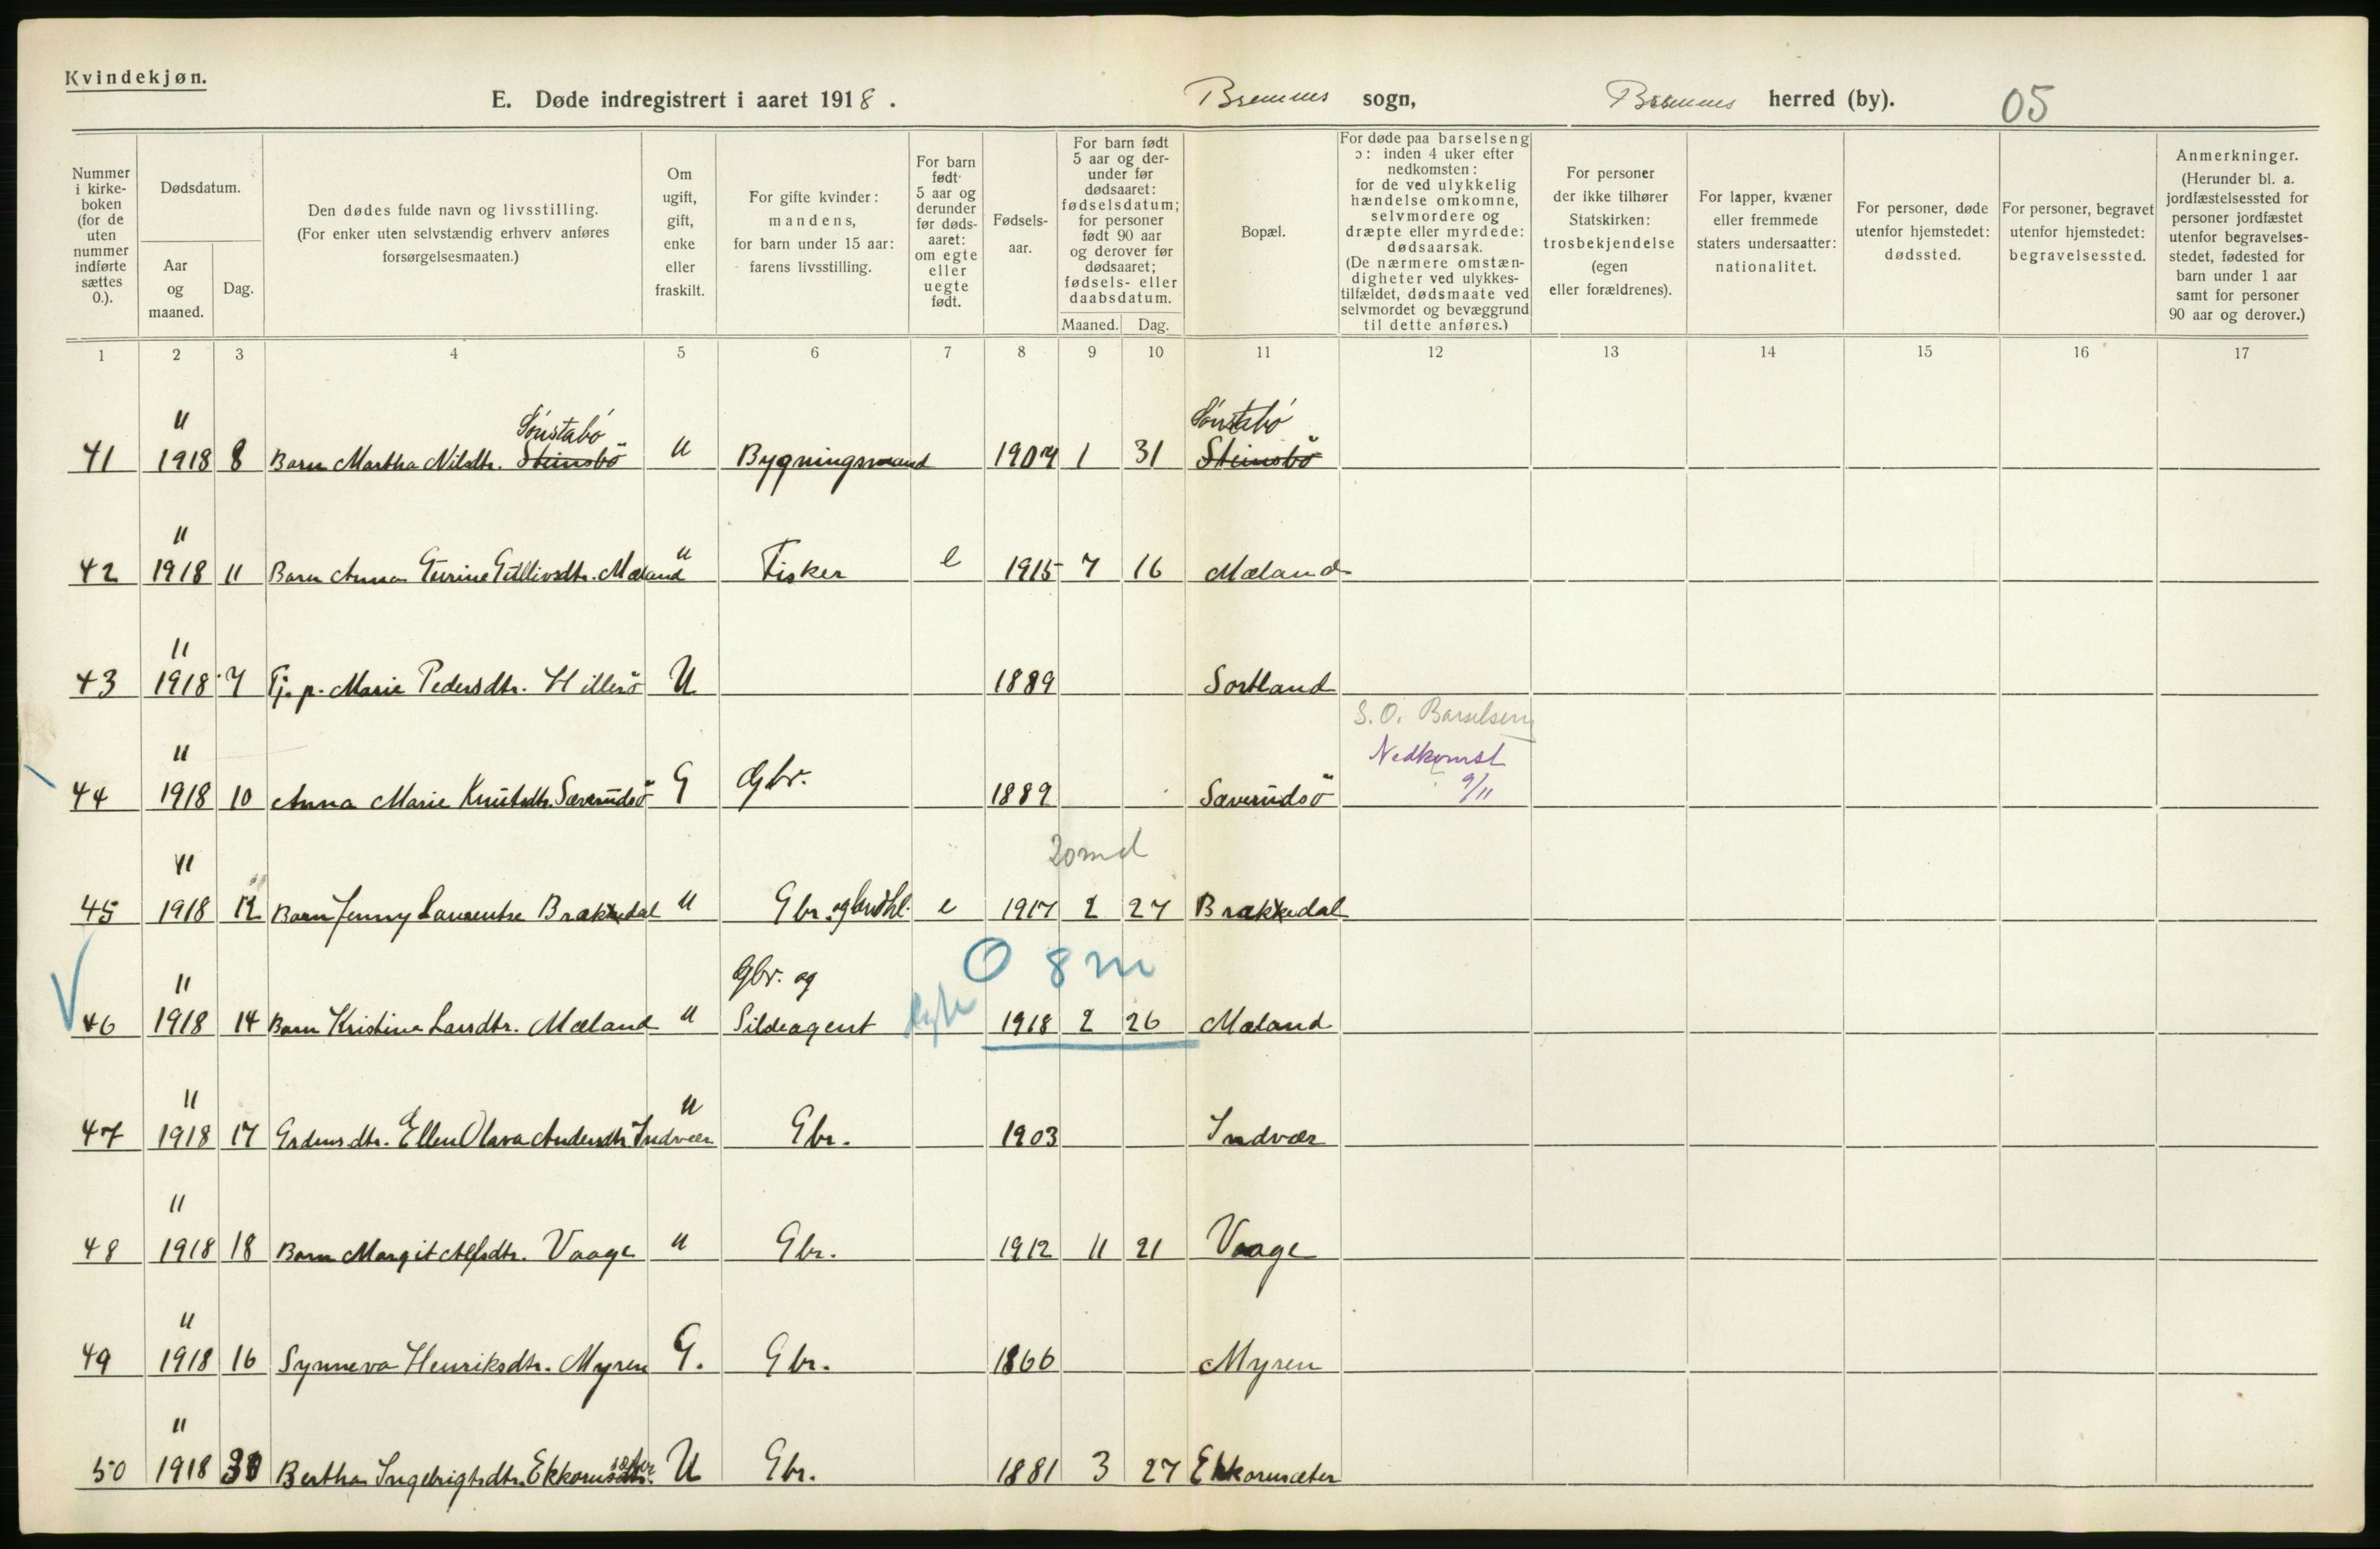 Kvindekjøn.
E. Døde indregistrert i aaret 1918.
Bremnes sogn, Bremnes herred (by). 05
Nummer i kirkeboken (for de uten nummer indførte sættes 0.).
Dødsdatum.
Aar og maaned.
Dag.
Den dødes fulde navn og livsstilling.
(For enker uten selvstændig erhverv anføres forsørgelsesmaaten.)
Om ugift, gift, enke eller fraskilt.
For gifte kvinder: mandens, for barn under 15 aar: farens livsstilling.
For barn født 5 aar og derunder før dødsaaret: om egte eller uegte født.
Fødselsaar.
For barn født 5 aar og derunder før dødsaaret: fødselsdatum; for personer født 90 aar og derover før dødsaaret; fødsels- eller daabsdatum.
Maaned. Dag.
Bopæl.
For døde paa barselseng ɔ: inden 4 uker efter nedkomsten: for de ved ulykkelig hændelse omkomne, selvmordere og dræpte eller myrdede: dødsaarsak. (De nærmere omstændigheter ved ulykkestilfældet, dødsmaate ved selvmordet og bevæggrund til dette anføres.)
For personer der ikke tilhører Statskirken: trosbekjendelse (egen eller forældrenes).
For lapper, kvæner eller fremmede staters undersaatter: nationalitet.
For personer, døde utenfor hjemstedet: dødssted.
For personer, begravet utenfor hjemstedet: begravelsessted.
Anmerkninger.
(Herunder bl. a. jordfæstelsessted for personer jordfæstet utenfor begravelsesstedet, fødested for barn under 1 aar samt for personer 90 aar og derover.)
1 2 3 4 5 6 7 8 9 10 11 12 13 14 15 16 17
11 Sönstabö Sönstabö
41 1918 8 Barn Martha Nilsdtr. Steinsbö u Bygningsmand 1907 1 31 Steinsbö
11
42 1918 11 Barn Anna Gurine Gitllivsdtr. Mæland u Fisker e 1915 7 16 Mæland
11
43 1918 7 Tj. p. Marie Pedersdtr. Hillesö U 1889 Sortland
S. O. Barselseng
11 Nedkomst
44 1918 10 Anna Marie Knutsdtr. Sæverudsö G Gbr. 1889 Sæverudsö 9/11
11 20 md
45 1918 12 Barn Jenny Laurentse Brakkedal u Gbr. og e 1917 2 27 Brakkedal
O 8 m
11 Gbr. og
46 1918 14 Barn Kristine Larsdtr. Mæland u Sildeagent 1918 2 26 Mæland
11
47 1918 17 Grdmsdtr. Ellen Olava Andersdtr Indvær u Gbr. 1903 Indvær
11
48 1918 18 Barn Margit Alfsdtr. Vaage u Gbr. 1912 11 21 Vaage
11
49 1918 16 Synneva Henriksdtr. Myren G. Gbr. 1866 Myren
11
50 1918 30 Bertha Ingebrigtsdtr. Ekkornsæter U Gbr. 1881 3 27 Ekkornsæter